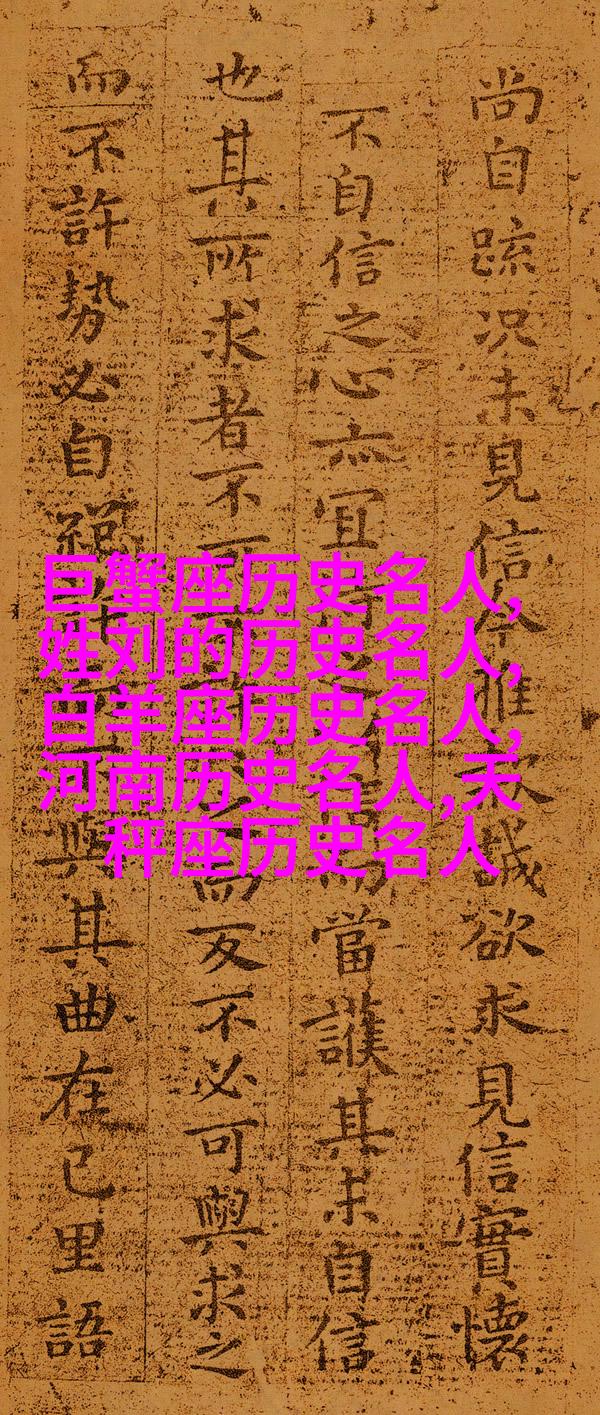 尚自疏況未見信今惟欲誠欲求見信實懷
不自信之心亦宜當護其未自信
也其所求者不可而反不必可與求之
而不許勢必自絕與其曲在己里語
巨蟹座历史名人,
姓刘的历史名人,
白羊座历史名人,
河南历史名人,天
秤座历史名人